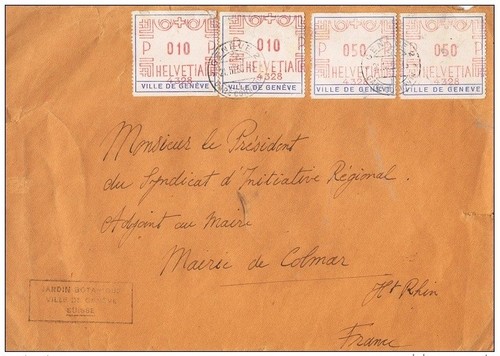 P 010 P 010 P 050 P 050
HELVETIA HELVETIA HELVETIA HELVETIA
4328 4328 4328 4328
VILLE DE GENÈVE VILLE DE GENÈVE VILLE DE GENÈVE VILLE DE GENÈVE
Monsieur le Président
du Syndicat d'Initiative Régional.
Adjoint au Maire
Mairie de Colmar
Ht Rhin
France
JARDIN BOTANIQUE
VILLE DE GENÈVE
SUISSE